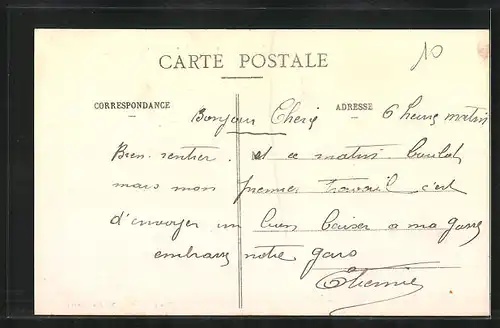 CARTE POSTALE
10
CORRESPONDANCE
ADRESSE
Bonjour Cherie 6 heures matin
Bien rentrer. et ce matin boulot
mais mon premier travail c'est
d'envoyer un bien baiser a ma gosse
embrasse notre gars